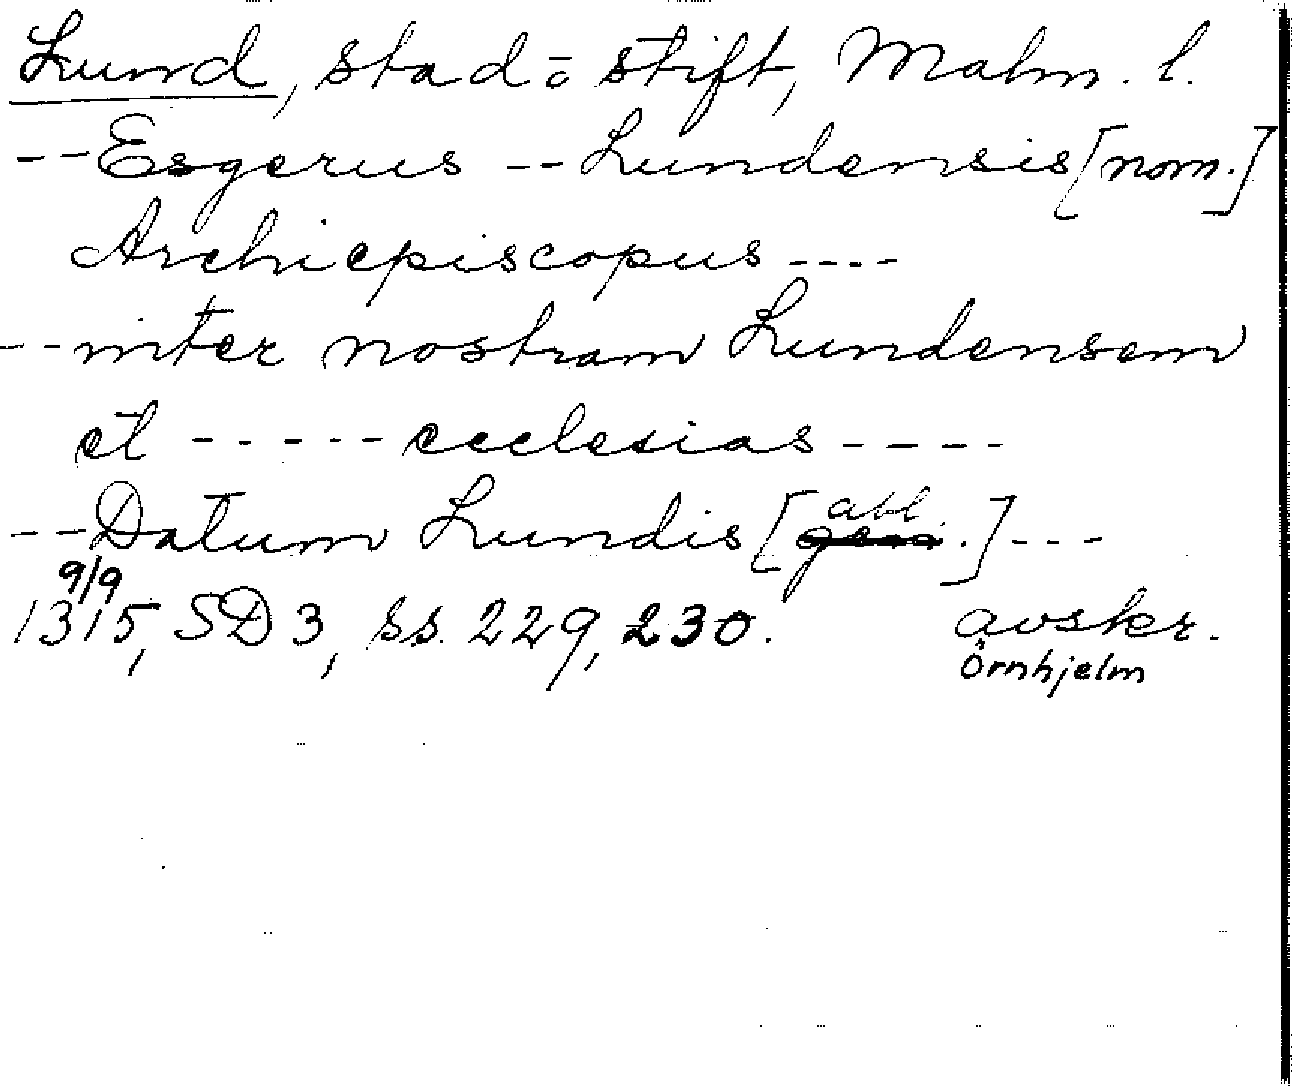 Lund, stad o stift, Malm. l.
--Esgerus --Lundensis [nom.]
Archiepiscopus ----
--inter nostram Lundensem
et ----- ecclesias ----
--Datum Lundis [abl.] ---
9/9
1315, SD 3, ss. 229, 230. avskr.
Örnhjelm